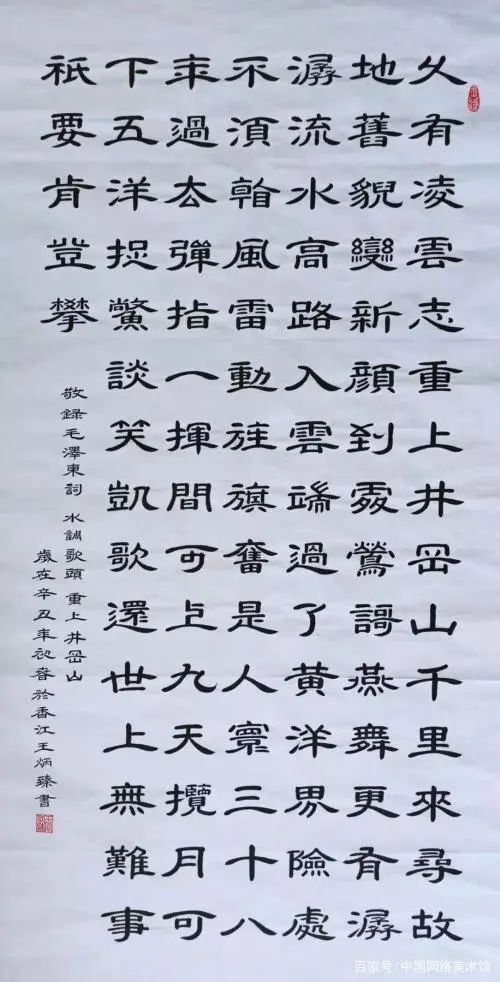 久有凌雲志重上井岡山千里來尋故
地舊貌變新顔到處鶯謌燕舞更有潺
潺流水高路入雲端過了黃洋界險處
不須看風雷動旌旗奮是人寰三十八
年過去彈指一揮間可上九天攬月可
下五洋捉鱉談笑凱歌還世上無難事
祇要肯登攀
敬錄毛澤東詞 水調歌頭 重上井岡山
歲在辛丑年初春於香江王炳臻書
百家号/中国网络美术馆